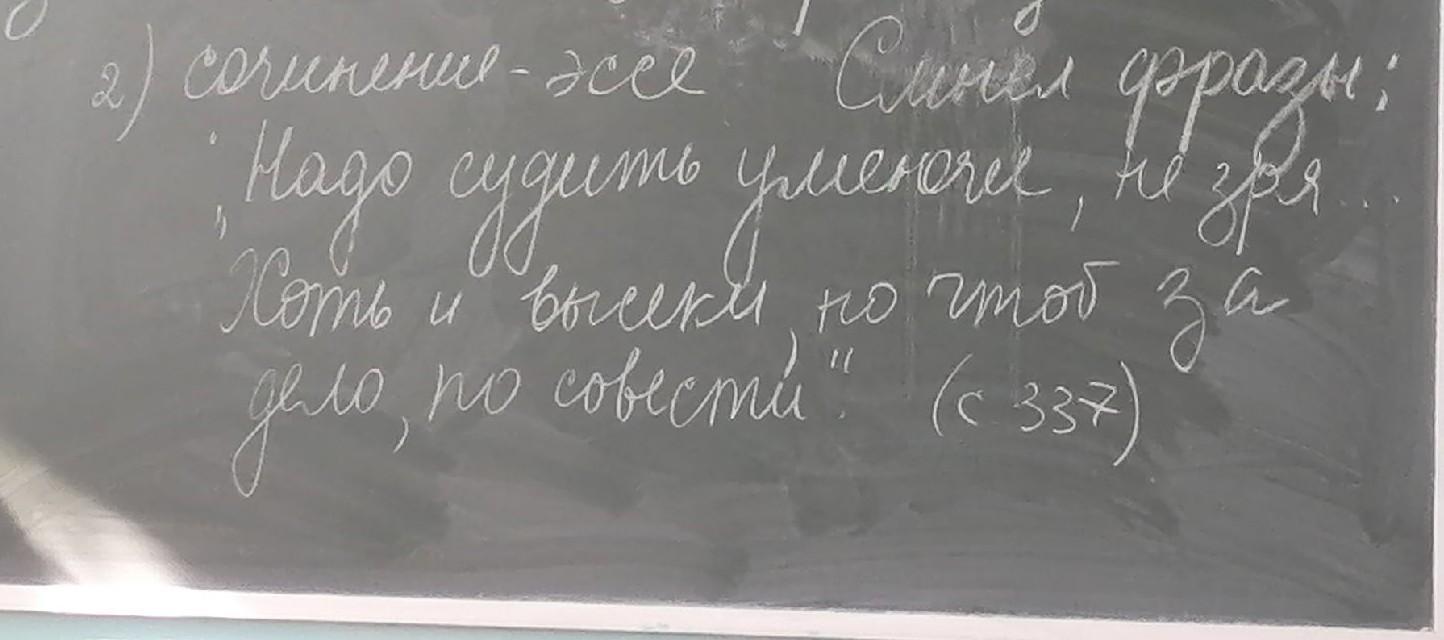 2) сочинение-эссе Смысл фразы:
„Надо судить умеючи, не зря...
Хоть и высеки, но чтоб за
дело, по совести". (с 337)